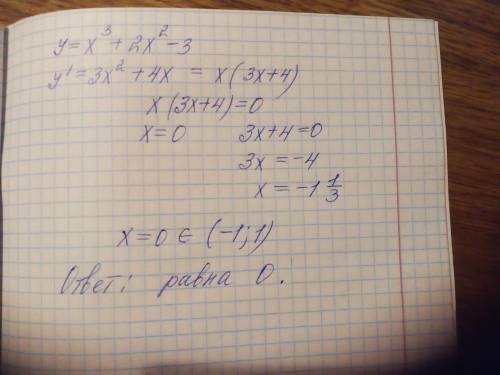 y = x³ + 2x² - 3
y' = 3x² + 4x = x(3x+4)
x(3x+4)=0
x=0 3x+4=0
3x = -4
x = -1 1/3
x=0 ∈ (-1;1)
Ответ: равна 0.